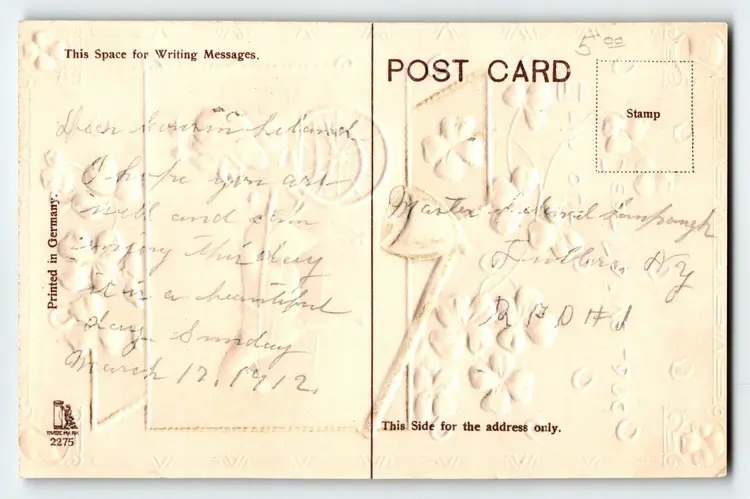 This Space for Writing Messages.
Dear Cousin Leland
I hope you are
well and can
enjoy this day
it is a beautiful
day. Sunday
March 17, 1912.
Printed in Germany.
TRADE MARK
2275
5 00
POST CARD
Stamp
Master Leland
N Y
R F D # 1
This Side for the address only.